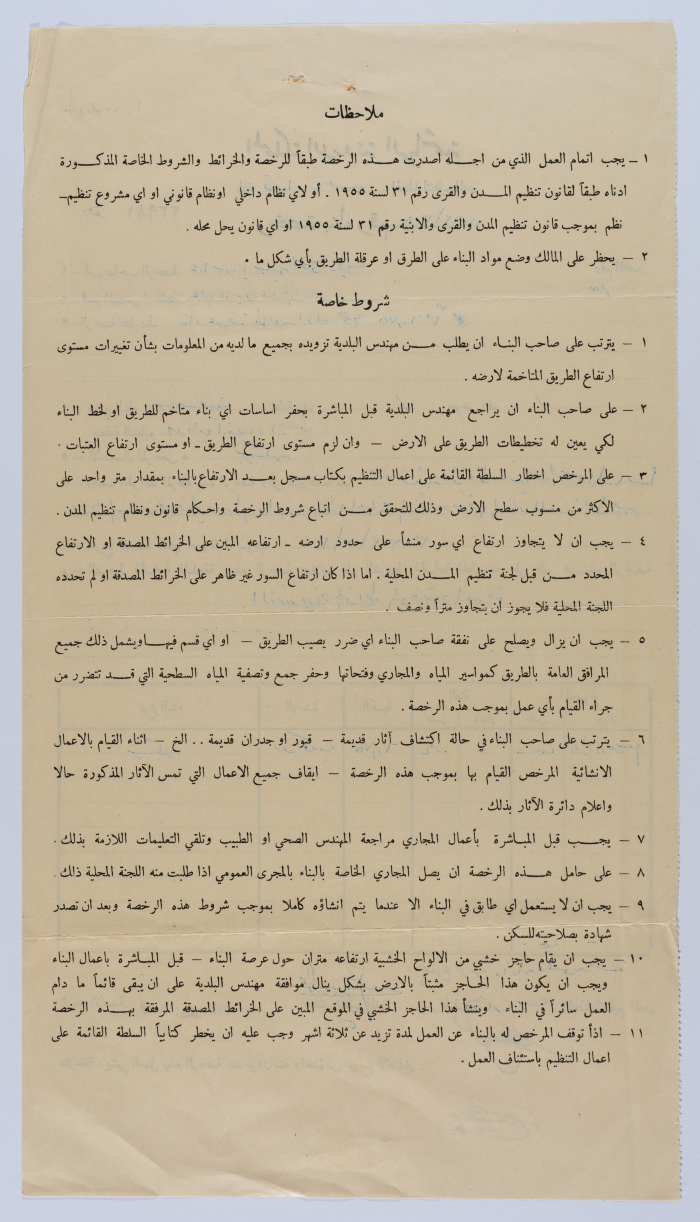 ملاحظات
١ – يجب اتمام العمل الذي من اجله اصدرت هذه الرخصة طبقاً للرخصة والخرائط والشروط الخاصة المذكورة
ادناه طبقاً لقانون تنظيم المدن والقرى رقم ٣١ لسنة ١٩٥٥ . أو لاي نظام داخلي اونظام قانوني او اي مشروع تنظيم –
نظم بموجب قانون تنظيم المدن والقرى والابنية رقم ٣١ لسنة ١٩٥٥ او اي قانون يحل محله .
٢ – يحظر على المالك وضع مواد البناء على الطرق او عرقلة الطريق بأي شكل ما ٠
شروط خاصة
١ – يترتب على صاحب البناء ان يطلب من مهندس البلدية تزويده بجميع ما لديه من المعلومات بشأن تغييرات مستوى
ارتفاع الطريق المتاخمة لارضه .
٢ – على صاحب البناء ان يراجع مهندس البلدية قبل المباشرة بحفر اساسات اي بناء متاخم للطريق او لخط البناء
لكي يعين له تخطيطات الطريق على الارض – وان لزم مستوى ارتفاع الطريق – او مستوى ارتفاع العتبات ٠
٣ – على المرخص اخطار السلطة القائمة على اعمال التنظيم بكتاب مسجل بعد الارتفاع بالبناء بمقدار متر واحد على
الاكثر من منسوب سطح الارض وذلك للتحقق من اتباع شروط الرخصة واحكام قانون ونظام تنظيم المدن .
٤ – يجب ان لا يتجاوز ارتفاع اي سور منشأ على حدود ارضه – ارتفاعه المبين على الخرائط المصدقة او الارتفاع
المحدد من قبل لجنة تنظيم المدن المحلية . اما اذا كان ارتفاع السور غير ظاهر على الخرائط المصدقة او لم تحدده
اللجنة المحلية فلا يجوز ان يتجاوز متراً ونصف .
٥ – يجب ان يزال ويصلح على نفقة صاحب البناء اي ضرر يصيب الطريق – او اي قسم فيها ويشمل ذلك جميع
المرافق العامة بالطريق كمواسير المياه والمجاري وفتحاتها وحفر جمع وتصفية المياه السطحية التي قد تتضرر من
جراء القيام بأي عمل بموجب هذه الرخصة .
٦ – يترتب على صاحب البناء في حالة اكتشاف آثار قديمة – قبور او جدران قديمة .. الخ – اثناء القيام بالاعمال
الانشائية المرخص القيام بها بموجب هذه الرخصة – ايقاف جميع الاعمال التي تمس الآثار المذكورة حالا
واعلام دائرة الآثار بذلك .
٧ – يجب قبل المباشرة بأعمال المجاري مراجعة المهندس الصحي او الطبيب وتلقي التعليمات اللازمة بذلك .
٨ – على حامل هذه الرخصة ان يصل المجاري الخاصة بالبناء بالمجرى العمومي اذا طلبت منه اللجنة المحلية ذلك .
٩ – يجب ان لا يستعمل اي طابق في البناء الا عندما يتم انشاؤه كاملا بموجب شروط هذه الرخصة وبعد ان تصدر
شهادة بصلاحيته للسكن .
١٠ – يجب ان يقام حاجز خشبي من الالواح الخشبية ارتفاعه متران حول عرصة البناء – قبل المباشرة باعمال البناء
ويجب ان يكون هذا الحاجز مثبتاً بالارض بشكل ينال موافقة مهندس البلدية على ان يبقى قائماً ما دام
العمل سائراً في البناء وينشأ هذا الحاجز الخشبي في الموقع المبين على الخرائط المصدقة المرفقة بهذه الرخصة
١١ – اذأ توقف المرخص له بالبناء عن العمل لمدة تزيد عن ثلاثة اشهر وجب عليه ان يخطر كتابياً السلطة القائمة على
اعمال التنظيم باستئناف العمل .